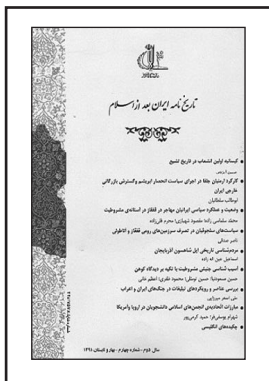 تاریخ نامه ایران بعد از اسلام
کیسانیه اولین انشعاب در تاریخ تشیع
حسین ایزدی
کارکرد ارمنیان جلفا در اجرای سیاست انحصار ابریشم و گسترش بازرگانی
خارجی ایران
ابوطالب سلطانیان
وضعیت و عملکرد سیاسی ایرانیان مهاجر در قفقاز در آستانه‌ی مشروطیت
محمد سلماسی زاده/ مقصود شهبازی/ محرم قلی‌زاده
سیاست‌های سلجوقیان در تصرف سرزمین‌های رومی قفقاز و آناطولی
ناصر صدقی
مردم‌شناسی تاریخی ایل شاهسون آذربایجان
اسماعیل
آسیب شناسی جنبش مشروطیت با تکیه بر دیدگاه کوهن
بررسی عناصر و رویکردهای تبلیغات در جنگ‌های ایران و اعراب
علی اصغر میرزایی
مبارزات اتحادیه‌ی انجمن‌های اسلامی دانشجویان در اروپا وآمریکا
شهرام یوسفی‌فر/ حمید کرمی‌پور
چکیده‌های انگلیسی
سال: دوم - شماره چهارم - بهار و تابستان ۱۳۹۱